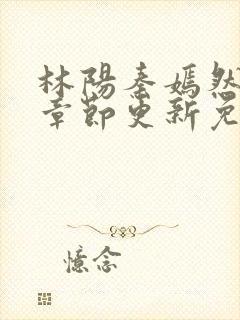 林陽秦嫣然
章節更新免
憶念